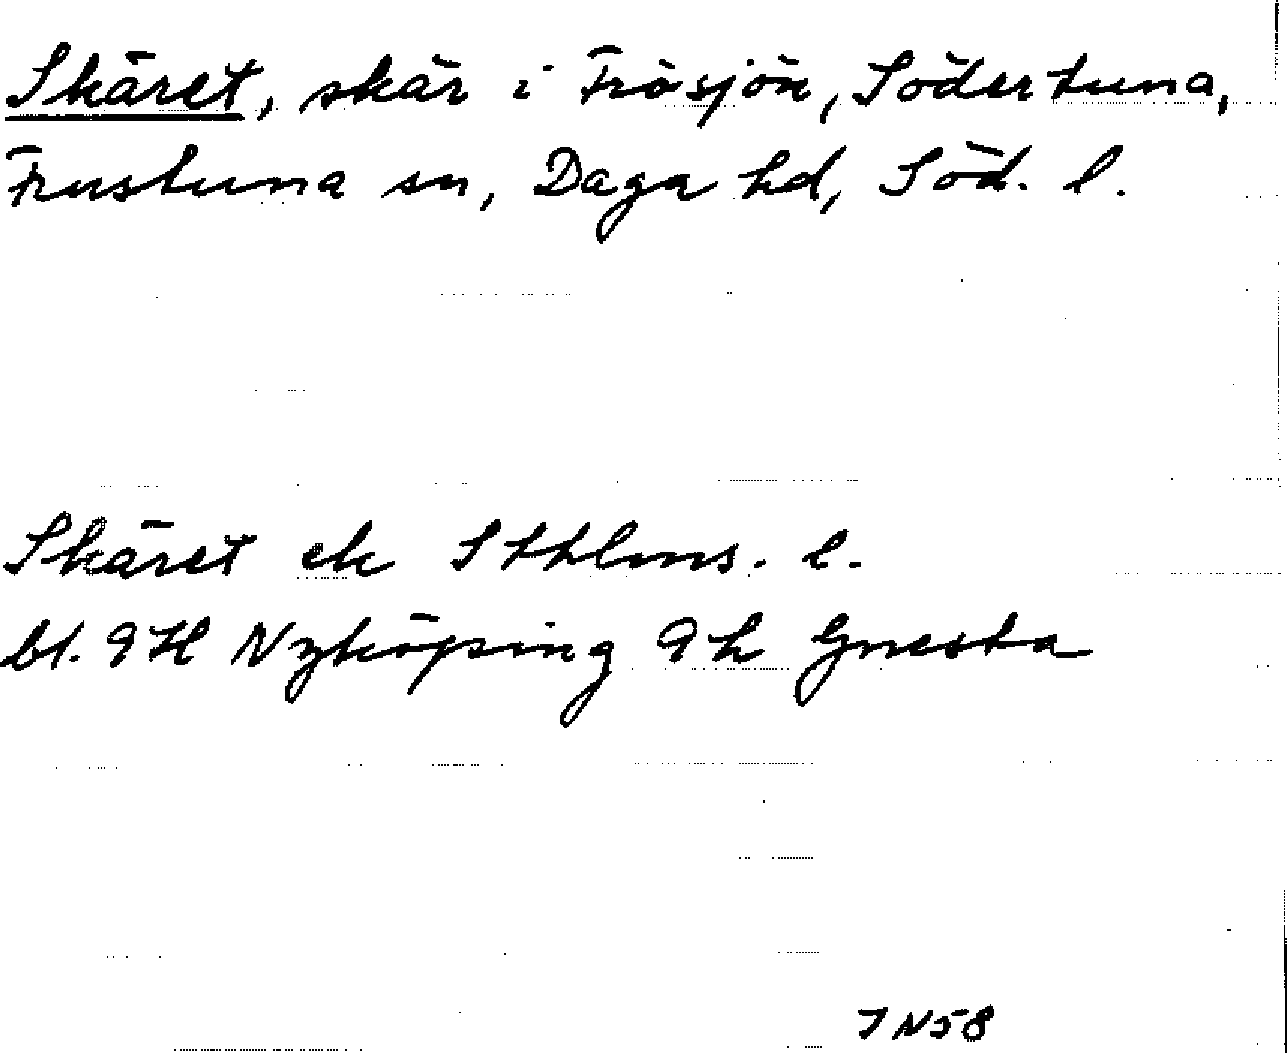 Skäret, skär i Frösjön, Södertuna,
Frustuna sn, Daga hd, Söd. l.
Skäret ek Sthlms. l.
bl. 9H Nyköping 9h Gnesta
JN58